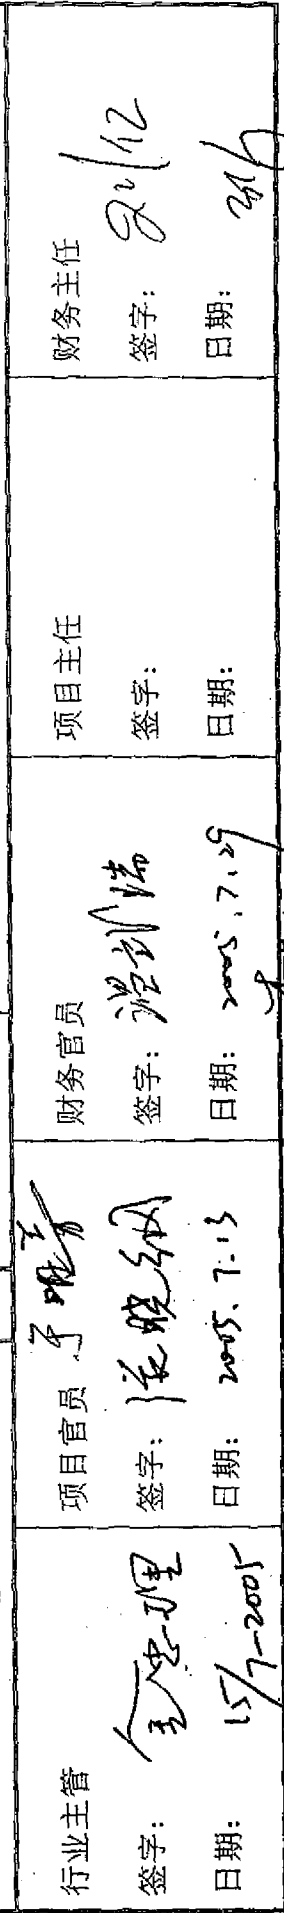 行业主管
签字：
日期：15/7-2005
项目官员
签字：张晓纲
日期：2005.7.13
财务官员
签字：
日期：2005.7.29
项目主任
签字：
日期：
财务主任
签字：
日期：